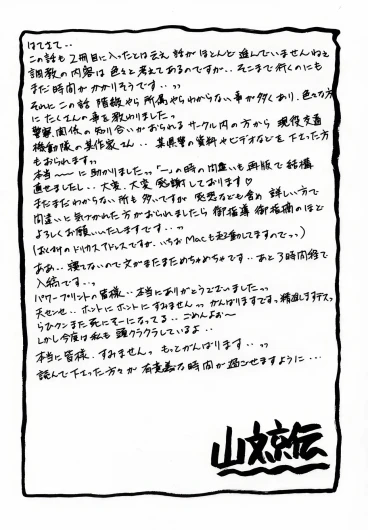 はてさて‥
この話も2冊目に入ったとは云え話がほとんど進んでいませんねぇ
調教の内容は色々と考えてあるのですが‥そこまで行くのにも
まだ時間がかかりそうです‥ッッ
それにこの話 階級やら所属やらわからない事が多くあり、色々な方
にたくさんの事を教わりましたっ
警察関係の知り合いがおられるサークル内の方から 現役交通
機動隊の某作家さん‥ 某県警の資料やビデオなどを下さった方
もおられますッッ
本当〜〜に助かりましたッッ「一」の時の間違いも再版で結構
直せましたし‥大変、大変感謝しております♡
まだまだわからない所も多いですが 感想なども含め 詳しい方で
間違いと気づかれた方がおられましたら御指導 御指摘のほど
よろしくお願いいたしますです‥ッ
ああ‥寝てないので文がまたまためちゃめちゃです‥あと3時間程で
入稿です‥っ
パワープリントの皆様‥本当にありがとうございましたッッ
天センセ‥ホントにホントにすみませんッッ がんばりますですっ精進しますデスッ
らむクンまた死にそーになってる‥ごめんよお〜
しかし今度は私も頭クラクラしているよ‥
本当に皆様、すみませんっ もっとがんばります‥ッッ
読んで下さった方々が 有意義な時間が過ごせますように‥‥
山文京伝